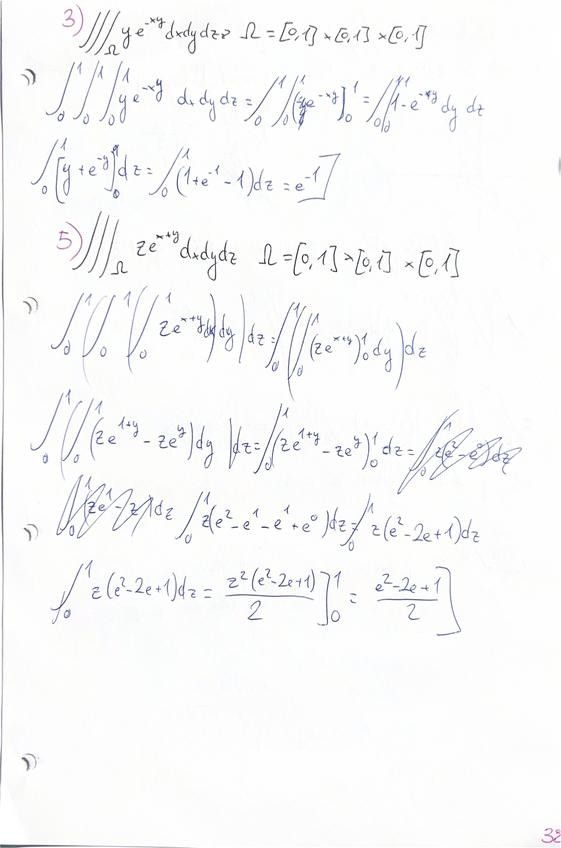 3) ∭_Ω y e^{-xy} dxdydz, Ω = [0,1] × [0,1] × [0,1]
∫_0^1 ∫_0^1 ∫_0^1 y e^{-xy} dx dy dz = ∫_0^1 ∫_0^1 e^{-xy} ]_0^1 = ∫_0^1 ∫_0^1 1 - e^{-y} dy dz
∫_0^1 [y + e^{-y}]_0^1 dz = ∫_0^1 (1 + e^{-1} - 1) dz = e^{-1}]
5) ∭_Ω z e^{x+y} dxdydz Ω = [0,1] × [0,1] × [0,1]
∫_0^1 (∫_0^1 (∫_0^1 z e^{x+y} dx) dy) dz = ∫_0^1 (∫_0^1 (z e^{x+y})_0^1 dy) dz
∫_0^1 (∫_0^1 (z e^{1+y} - z e^y) dy) dz = ∫_0^1 (z e^{1+y} - z e^y)_0^1 dz =
∫_0^1 z(e^2 - e^1 - e^1 + e^0) dz = ∫_0^1 z(e^2 - 2e + 1) dz
∫_0^1 z(e^2 - 2e + 1) dz = z^2(e^2 - 2e + 1)/2 ]_0^1 = (e^2 - 2e + 1)/2 ]